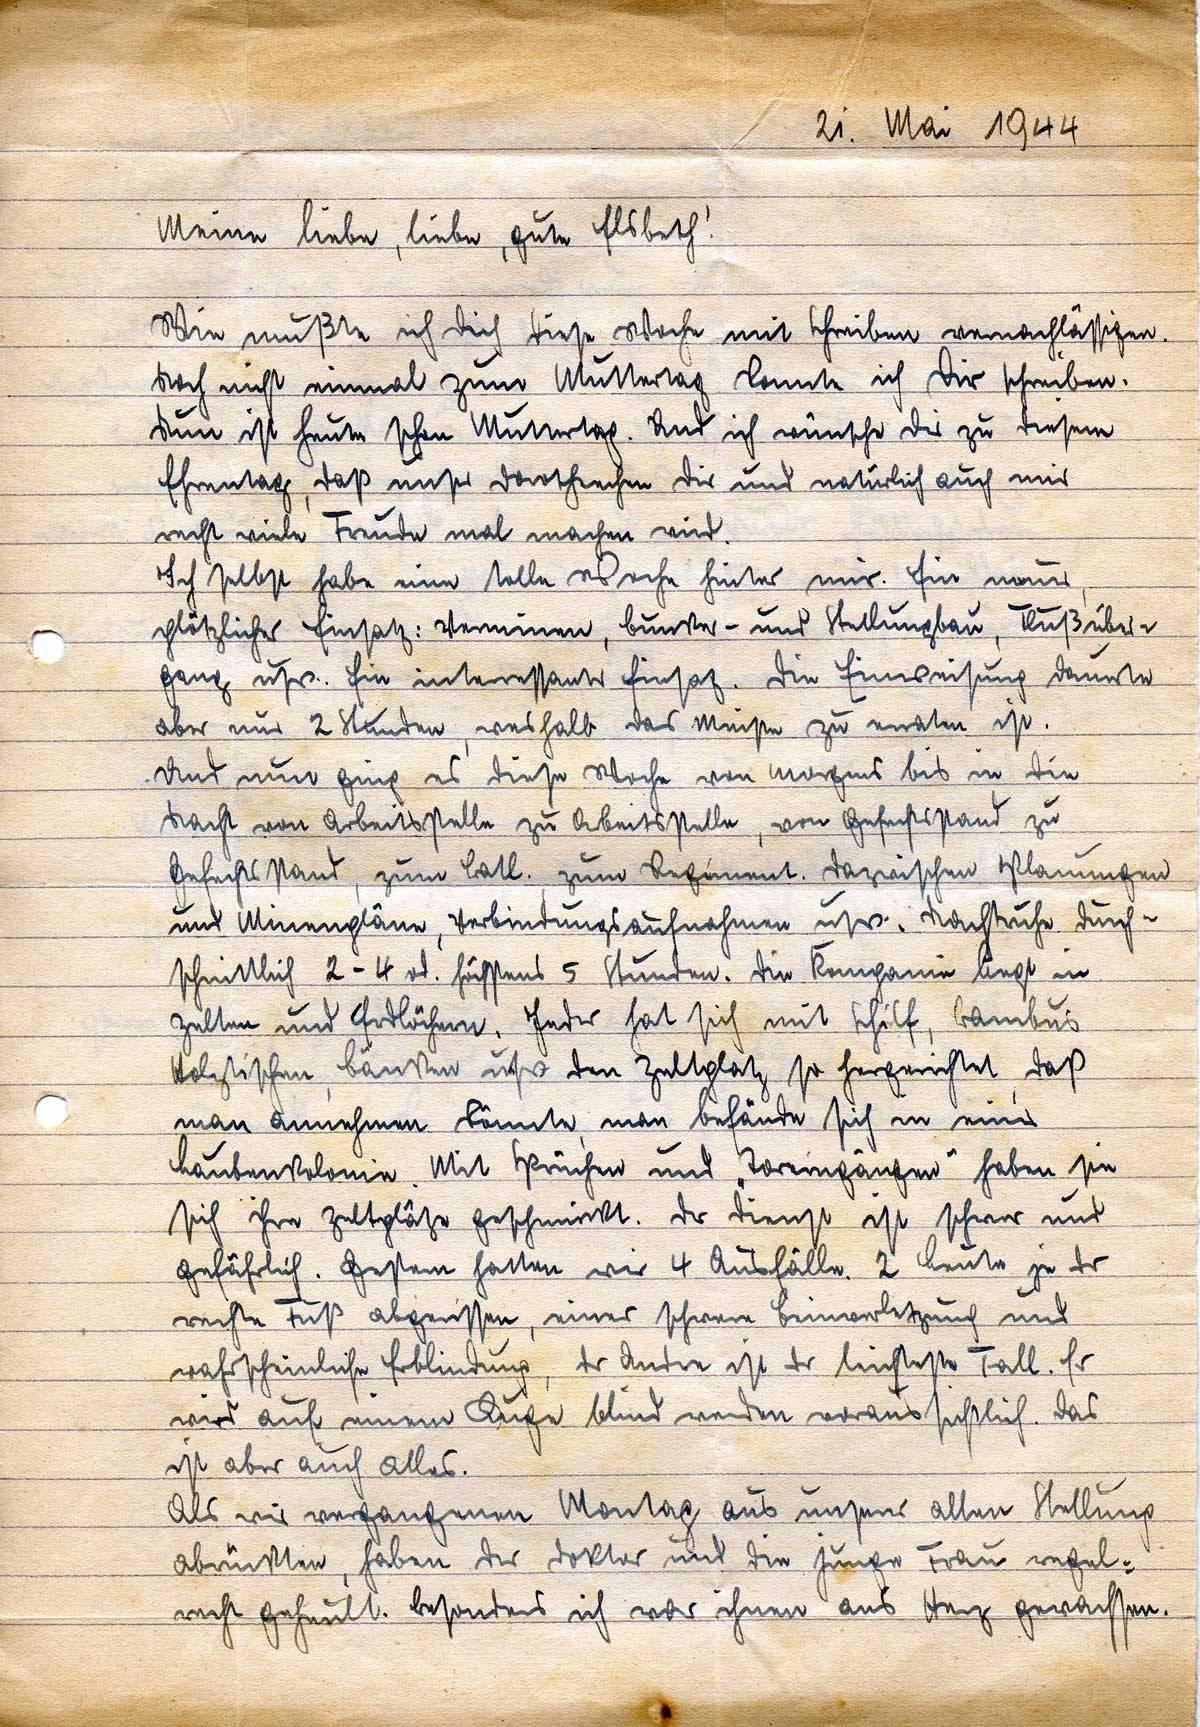 21. Mai 1944
Meine liebe, liebe, gute Elsbeth!
Wie mußte ich Dich diese Woche mit Schreiben vernachlässigen.
Noch nicht einmal zum Muttertag konnte ich Dir schreiben.
Nun ist heute schon Muttertag. Und ich wünsche Dir zu diesem
Ehrentag, daß unser Dorotheechen Dir und natürlich auch mir
recht viele Freude mal machen wird.
Ich selbst habe eine tolle Woche hinter mir. Ein neuer,
plötzlicher Einsatz: Verminen, Bunker- und Stellungbau, Flußüber-
gang usw.. Ein interessanter Einsatz. Die Einweisung dauerte
aber nur 2 Stunden, weshalb das Meiste zu erraten ist.
Und nun ging es diese Woche von morgens bis in die
Nacht von Arbeitsstelle zu Arbeitsstelle, von Gefechtsstand zu
Gefechtsstand, zum Batl. zum Regiment. Dazwischen Planungen
und Minenpläne, Verbindungsaufnahmen usw. Nachtruhe durch-
schnittlich 2-4 od. höchstens 5 Stunden. Die Kompanie liegt in
Zelten und Erdlöchern. Jeder hat sich mit Schilf, Bambus
Holztischen, Bänken usw den Zeltplatz so hergerichtet, daß
man annehmen könnte, man befände sich in einer
Laubenkolonie. Mit Sprüchen und „Toreingängen" haben sie
sich ihre Zeltplätze geschmückt. Der Dienst ist schwer und
gefährlich. Gestern hatten wir 4 Ausfälle. 2 Leute je der
rechte Fuß abgerissen, einer schwere Beinverletzung und
wahrscheinliche Erblindung, der Andre ist der leichteste Fall. Er
wird auf einem Auge blind werden voraussichtlich. Das
ist aber auch alles.
Als wir vergangenen Montag aus unserer alten Stellung
abrückten, haben der Doktor und die junge Frau regel-
recht geheult. Besonders ich war ihnen ans Herz gewachsen.